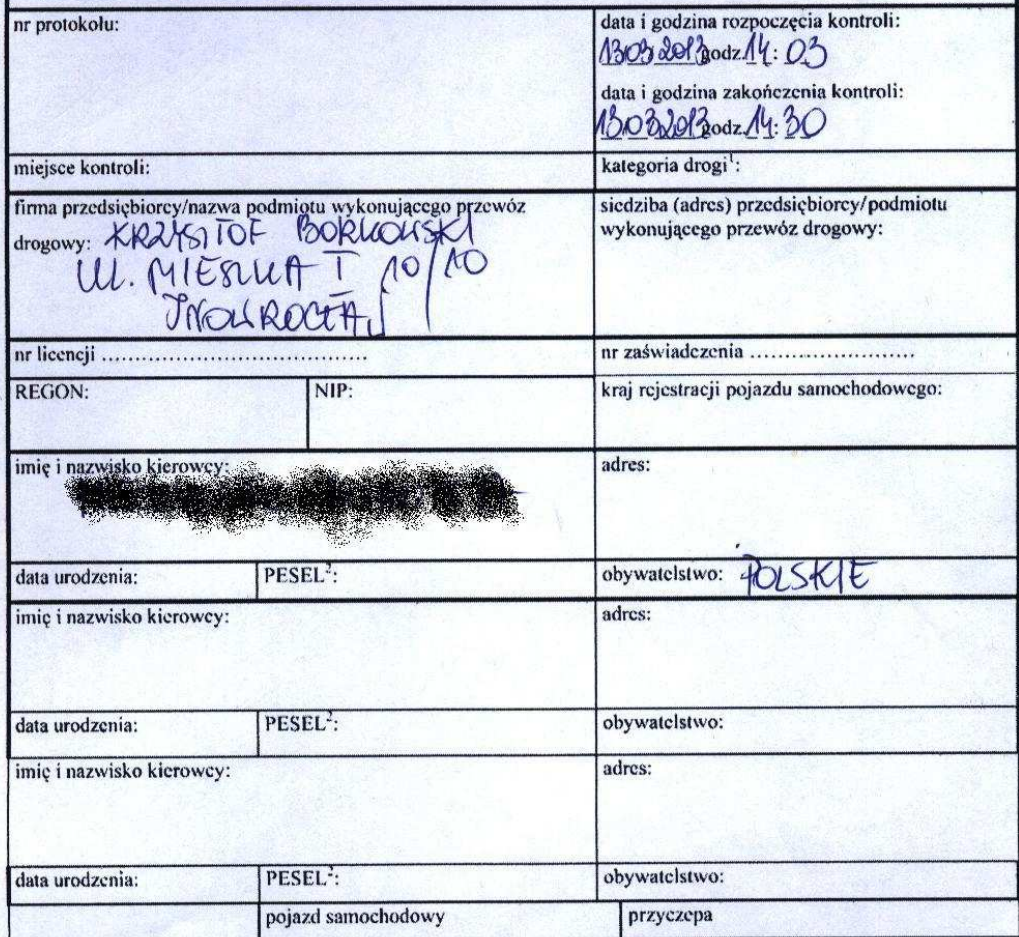 nr protokołu:
data i godzina rozpoczęcia kontroli:
13.03.2013 godz. 14:03
data i godzina zakończenia kontroli:
13.03.2013 godz. 14:30
miejsce kontroli:
kategoria drogi¹:
firma przedsiębiorcy/nazwa podmiotu wykonującego przewóz
drogowy: KRZYSZTOF BORKOWSKI
UL. MIESZKA I 10/10
INOWROCŁAW
siedziba (adres) przedsiębiorcy/podmiotu
wykonującego przewóz drogowy:
nr licencji ......................................
nr zaświadczenia ........................
REGON:
NIP:
kraj rejestracji pojazdu samochodowego:
imię i nazwisko kierowcy:
adres:
data urodzenia:
PESEL²:
obywatelstwo: POLSKIE
imię i nazwisko kierowcy:
adres:
data urodzenia:
PESEL²:
obywatelstwo:
imię i nazwisko kierowcy:
adres:
data urodzenia:
PESEL²:
obywatelstwo:
pojazd samochodowy
przyczepa